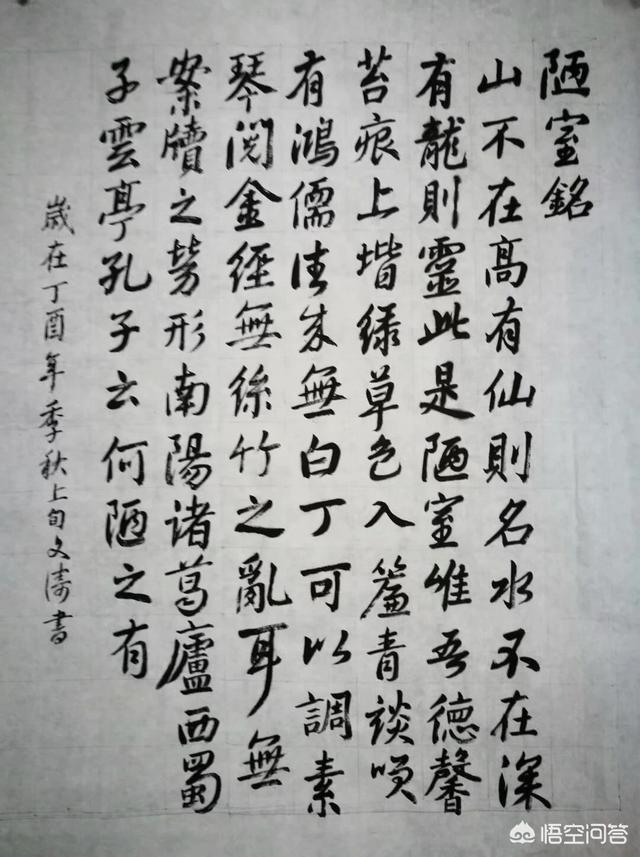 陋室銘
山不在高有仙則名水不在深
有龍則靈此是陋室惟吾德馨
苔痕上堦绿草色入簾青談咲
有鴻儒往来無白丁可以調素
琴閲金經無絲竹之亂耳無
案牘之勞形南陽诸葛廬西蜀
子雲亭孔子云何陋之有
歲在丁酉年季秋上旬文濤書
悟空问答